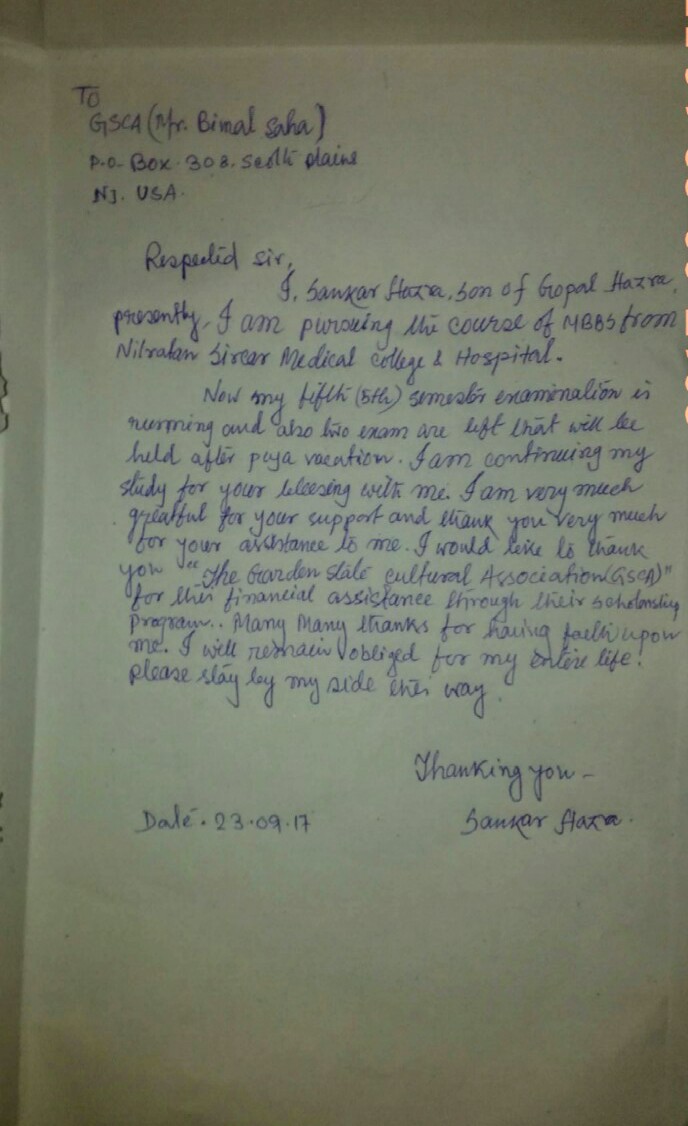 To
GSCA (Mr. Bimal Saha)
P.O. Box. 303. Scoth plains
NJ. USA.
Respected sir,
I, Sankar Hazra, son of Gopal Hazra,
presently, I am pursuing the course of MBBS from
Nilratan Sircar Medical College & Hospital.
Now my fifth (5th) semester examination is
running and also two exam are left that will be
held after puja vacation. I am continuing my
study for your blessing with me. I am very much
greatful for your support and thank you very much
for your assistance to me. I would like to thank
you "The Garden state cultural Association (GSCA)"
for their financial assistance through their scholarship
program.. Many Many thanks for having faith upon
me. I will remain obliged for my entire life.
please stay by my side this way.
Thanking you -
Date. 23.09.17 Sankar Hazra.